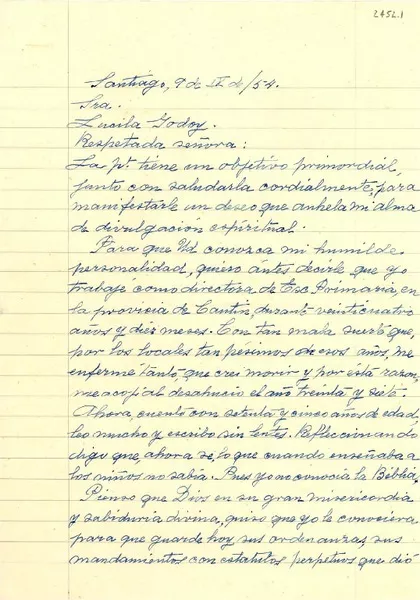 2452.1
Santiago, 9 de IX de/54.
Sra.
Lucila Godoy.
Respetada señora:
La pte tiene un objetivo primordial,
junto con saludarla cordialmente, para
manifestarle un deseo que anhela mi alma
de divulgación espíritual.
Para que Ud. conozca mi humilde
personalidad, quiero ántes decirle que yo
trabajé como directora de Esc. Primaria, en
la provicia de Cautín, durante veinticuatro
años y diez meses. Con tan mala suerte que,
por los locales tan pésimos de esos años, me
enfermé tanto, que creí morir y por ésta razon,
me acojí al desahucio el año treinta y seis.
Ahora, cuento con setenta y cinco años de edad
leo mucho y escribo sin lentes. Refleccionando
digo que, ahora se, lo que cuando enseñaba a
los niños no sabía. Pues yo no conocía la Biblia.
Pienso que Dios en su gran misericordia
y sabiduría divina, quiso que yo le conociera
para que guarde hoy sus ordenanzas, sus
mandamientos con estatutos perpétuos que dió